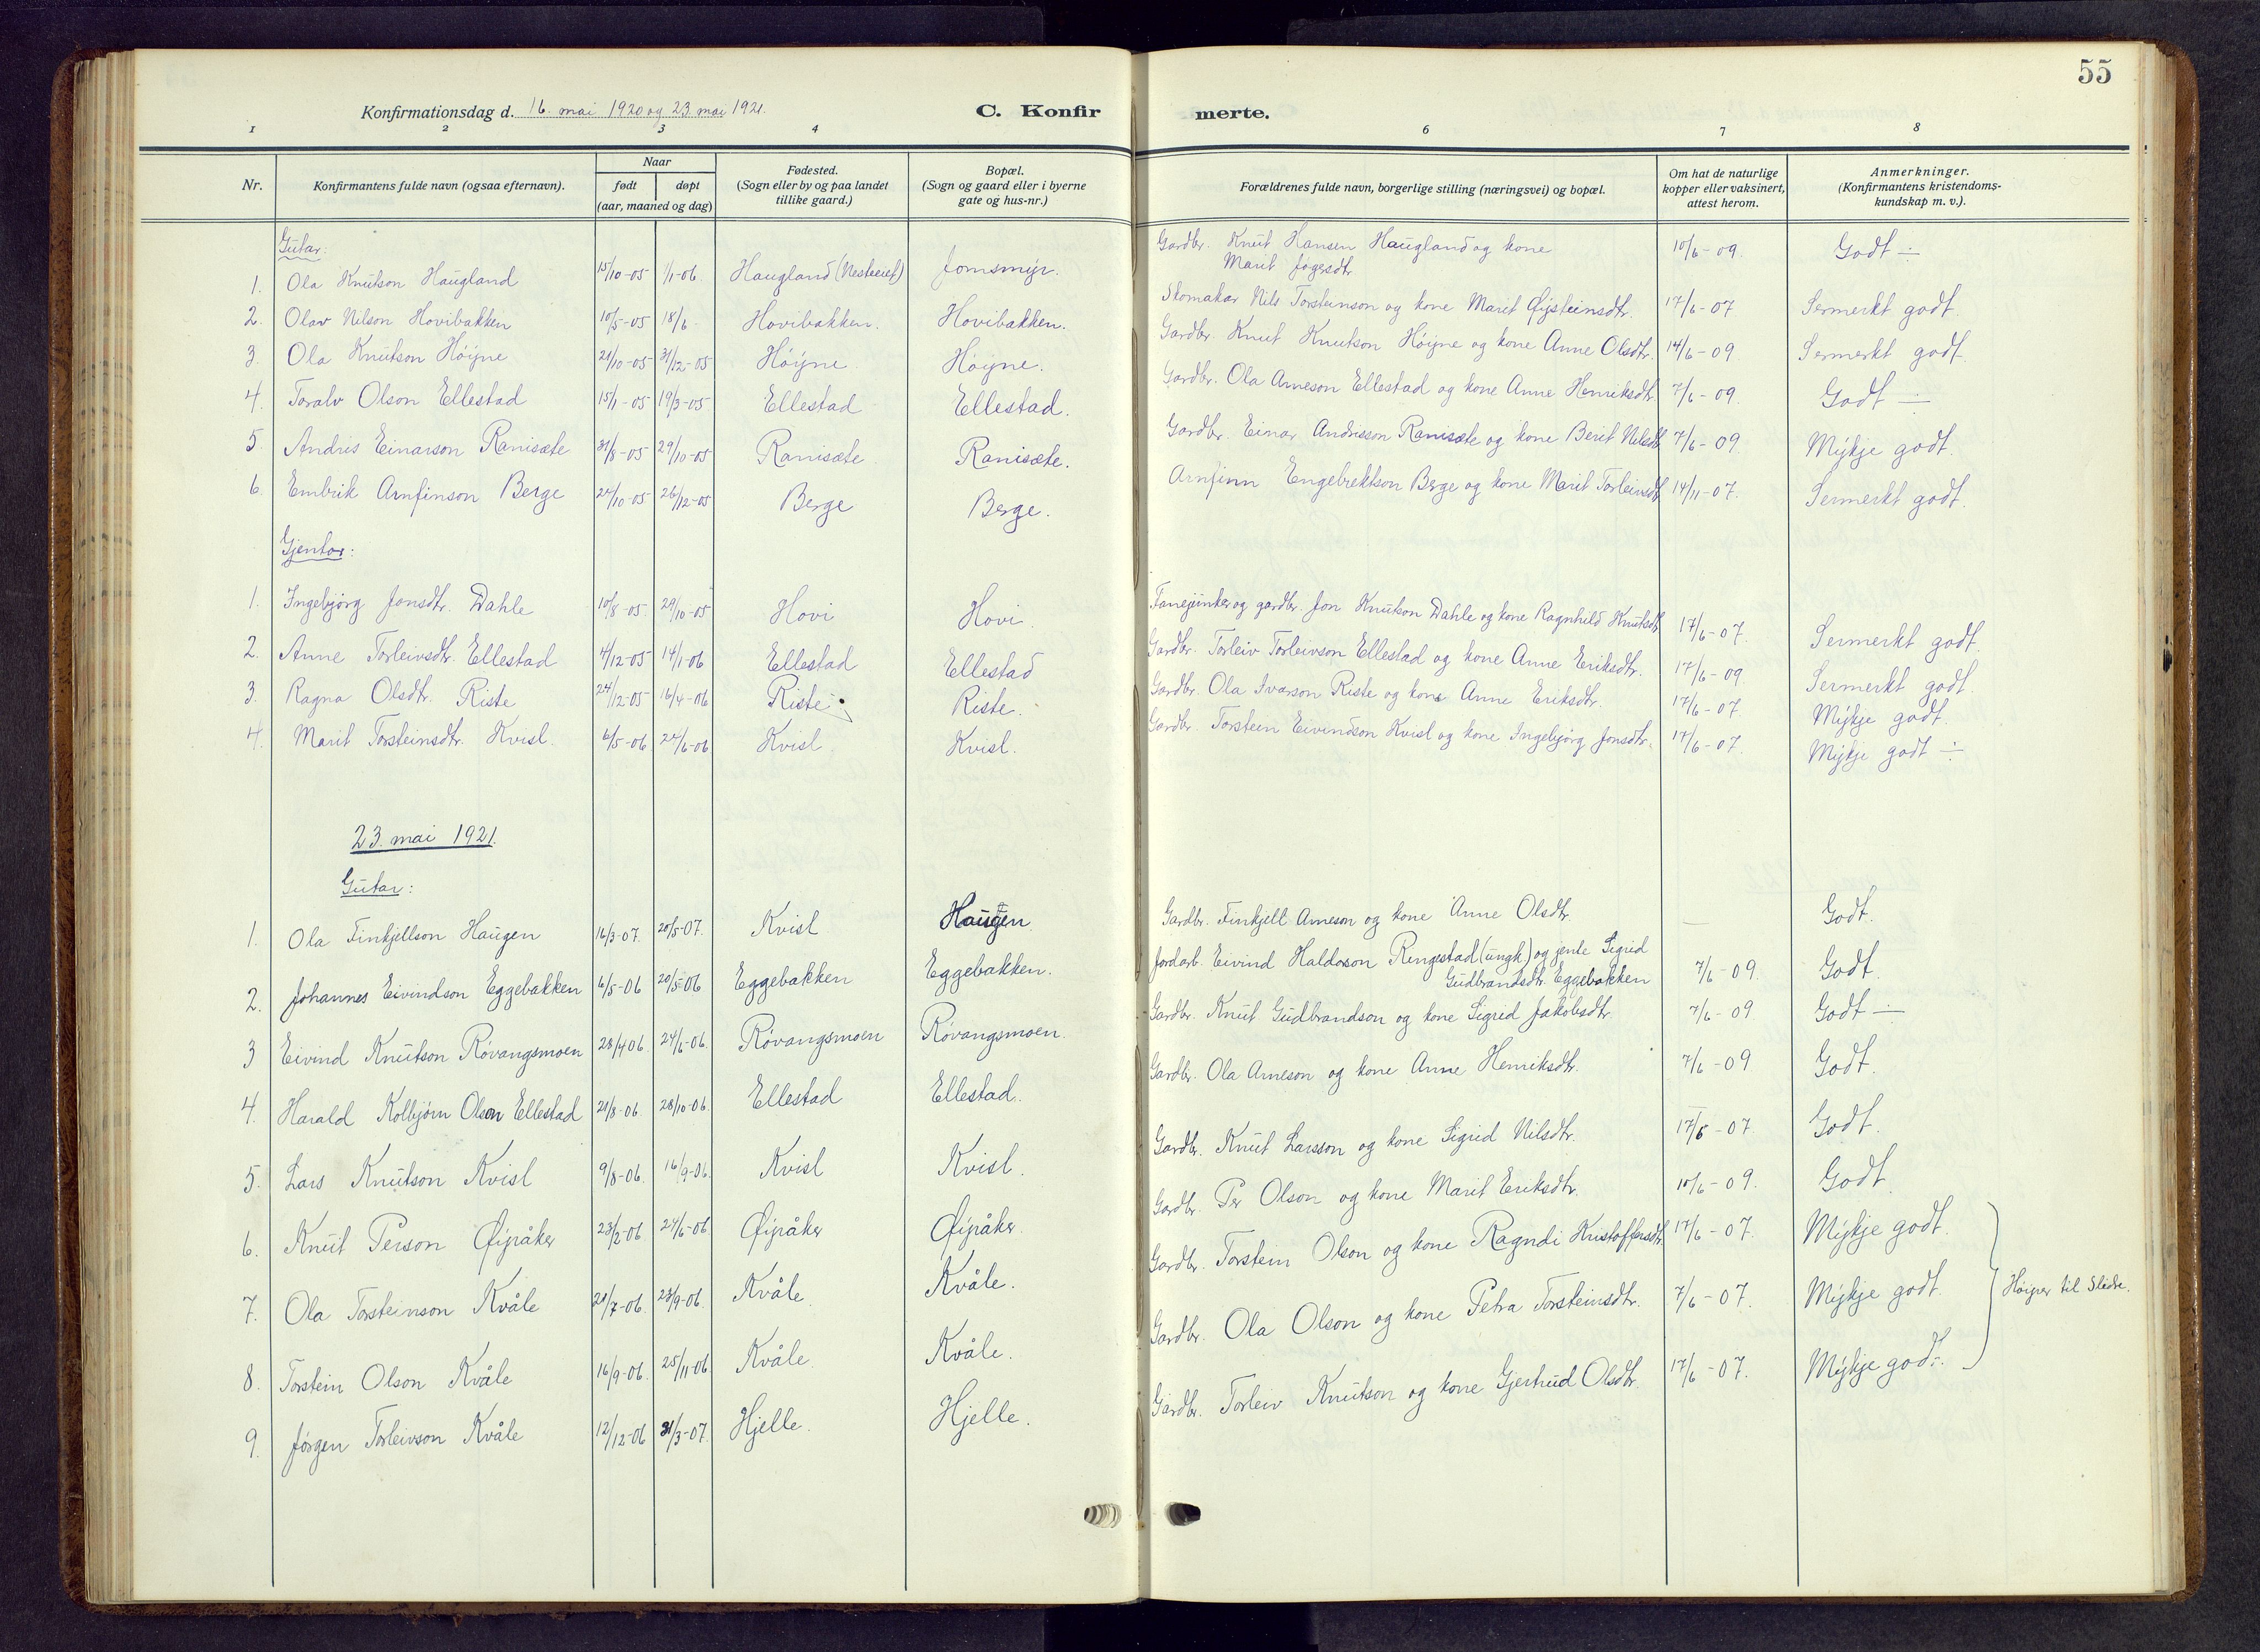 55
Konfirmationsdag d. 16. mai 1920 og 23. mai 1921. C. Konfirmerte.
1 2 3 4 6 7 8
Nr. Konfirmantens fulde navn (ogsaa efternavn). Naar født døpt (aar, maaned og dag) Fødested. (Sogn eller by og paa landet tillike gaard.) Bopæl. (Sogn og gaard eller i byerne gate og hus-nr.) Forældrenes fulde navn, borgerlige stilling (næringsvei) og bopæl. Om hat de naturlige kopper eller vaksinert, attest herom. Anmerkninger. (Konfirmantens kristendoms-kundskap m. v.).
Gutar:
1. Ola Knutson Haugland 15/10-05 1/1-06. Haugland Gardbr. Knut Hansen Haugland og kone Marit 10/6-09. Godt ÷
2. Olav Nilson Hovibakken 10/5-05 18/6 Hovibakken. Hovibakken. Skomakar Nils Torsteinson og kone Marit Øysteinsdtr. 17/6-07 Sermerkt godt.
3. Ola Knutson Høyne 21/10-05 31/12-05 Høyne. Høyne. Gardbr. Knut Knutson Høyne og kone Anne Olsdtr. 14/6-09. Sermerkt godt.
4. Toralv Olson Ellestad 15/1-05 19/3-05 Ellestad Ellestad. Gardbr. Ola Arneson Ellestad og kone Anne Henriksdtr. 7/6-09. Godt ÷
5 Andris Einarson Ranisæte 31/8-05 29/10-05 Ranisæte Ranisæte. Gardbr. Einar Andrisson Ranisæte og kone Berit Nilsdtr 7/6-09 Mykje godt.
6. Embrik Arnfinson Berge 24/10-05 26/12-05 Berge Berge. Arnfinn Engebrektson Berge og kone Marit Torleivsdtr 14/11-07. Sermerkt godt.
Gjentor:
1. Ingebjørg Jonsdtr. Dahle 10/8-05. 29/10-05 Hovi Hovi. Fanejunker og gardbr. Jon Knutson Dahle og kone Ragnhild Knutsdtr 17/6-07. Sermerkt godt.
2. Anne Torleivsdtr. Ellestad 4/12-05 14/1-06 Ellestad Ellestad Gardbr. Torleiv Torleivson Ellestad og kone Anne Eriksdtr. 17/6-09 Sermerkt godt.
3. Ragna Olsdtr. Riste 24/12-05 16/4-06 Riste Riste. Gardbr. Ola Ivarson Riste og kone Anne Eriksdtr. 17/6-07 Mykje godt.
4. Marit Torsteinsdtr. Kvisl. 6/5-06 24/6-06 Kvisl. Kvisl. Gardbr. Torstein Eivindson Kvisl og kone Ingebjørg Jonsdtr. 17/6-07. Mykje godt ÷
23. mai 1921.
Gutar:
1. Ola Finkjellson Haugen 16/3-07. 20/5-07. Kvisl Haugen Gardbr. Finkjell Arneson og kone Anne Olsdtr. — Godt.
2. Johannes Eivindson Eggebakken 6/5-06 20/5-06 Eggebakken Eggebakken. Jordarb. Eivind Haldorson Ringestad (ungk.) og jente Sigrid Gudbrandsdtr. Eggebakken 7/6-09. Godt.
3 Eivind Knutson Róvangsmoen 28/4 06. 24/6-06. Róvangsmoen Róvangsmoen. Gardbr. Knut Gudbrandson og kone Sigrid Jakobsdtr. 7/6-09. Godt ÷
4. Harald Kolbjørn Olson Ellestad 21/8-06. 28/10-06. Ellestad Ellestad. Gardbr. Ola Arneson og kone Anne Henriksdtr. 7/6-09. Godt.
5. Lars Knutson Kvisl 9/8-06. 16/9-06. Kvisl Kvisl. Gardbr. Knut Larsson og kone Sigrid Nilsdtr. 17/6-07. Godt.
6. Knut Person Øyjråker 23/2-06 24/6-06 Øyjråker Øyjråker. Gardbr. Per Olson og kone Marit Eriksdtr. 10/6-09. Godt.
7. Ola Torsteinson Kvåle 21/7-06. 23/9-06. Kvåle. Kvåle. Gardbr. Torstein Olson og kone Ragndi Kristoffersdtr. 17/6-07. Mykje godt.
8. Torstein Olson Kvåle 16/9-06. 25/11-06 Kvåle. Kvåle. Gardbr. Ola Olson og kone Petra Torsteinsdtr. 7/6-07. Mykje godt. Høyrer til Slidre.
9. Jørgen Torleivson Kvåle 12/12-06 31/3-07. Hjelle. Hjelle. Gardbr. Torleiv Knutson og kone Gjertrud Olsdtr. 17/6-07. Mykje godt.